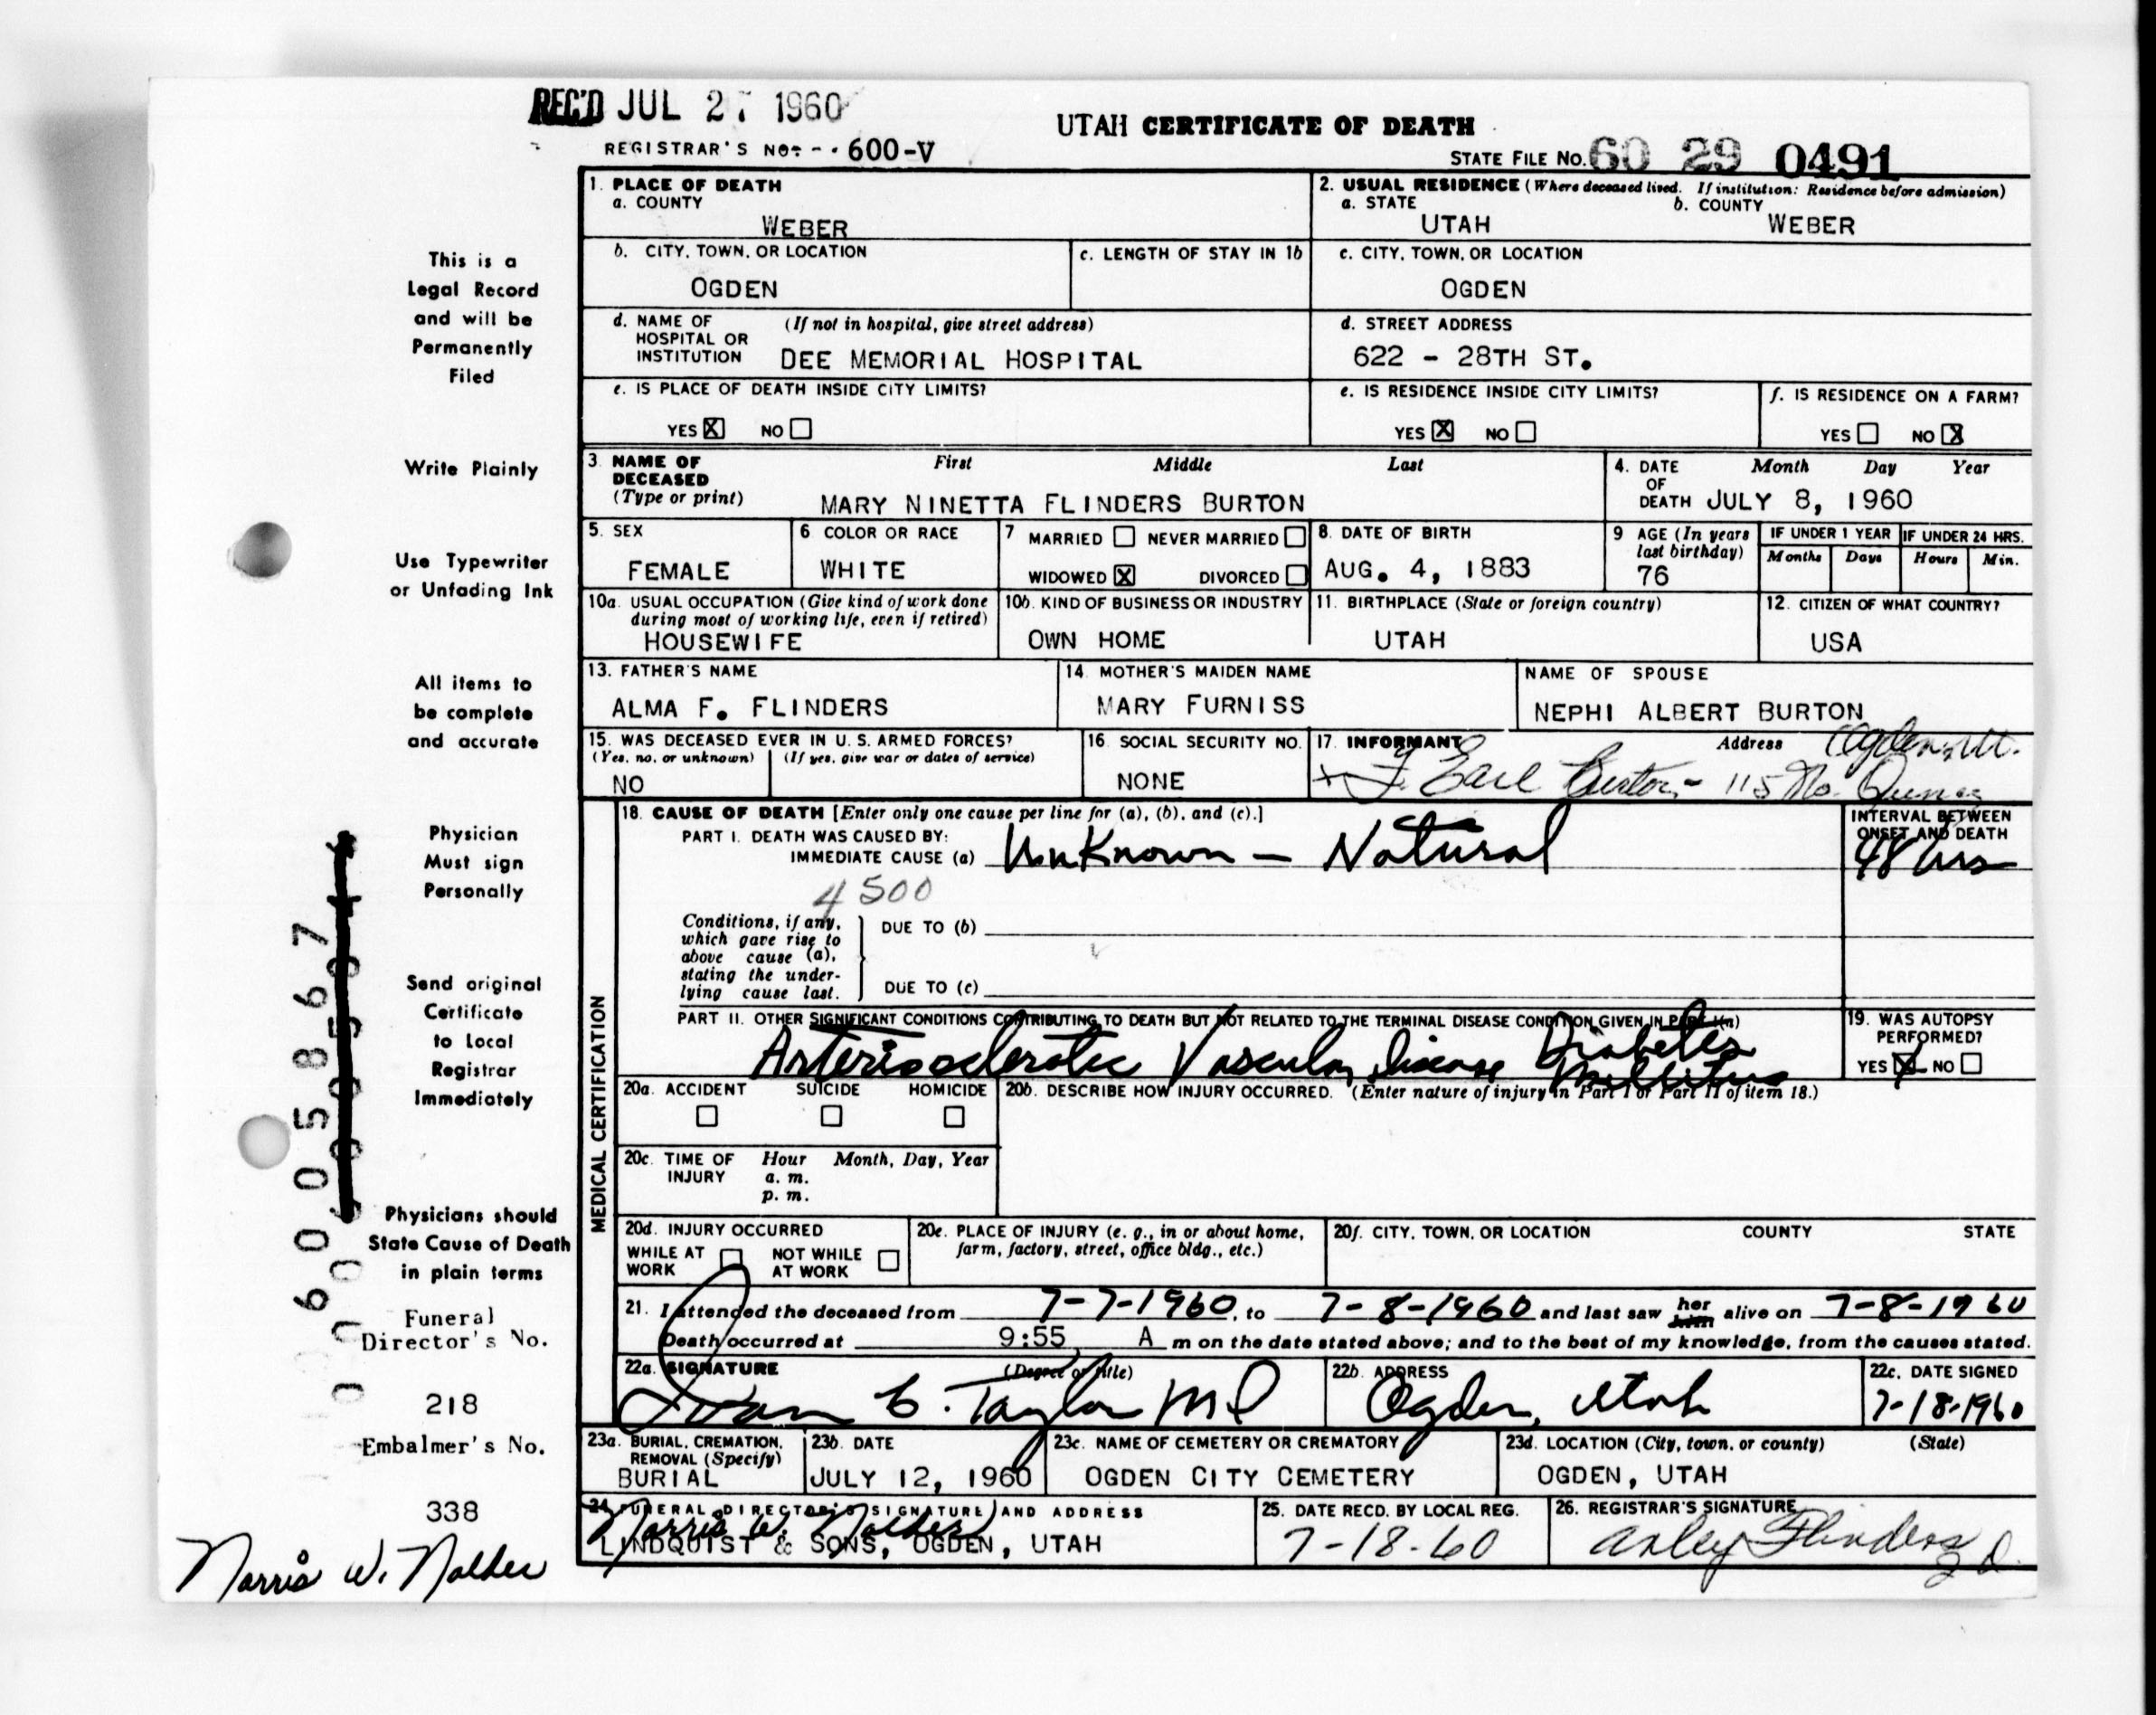 REC'D JUL 27 1960
UTAH CERTIFICATE OF DEATH
REGISTRAR'S NO. 600-V
STATE FILE NO. 60 29 0491
1. PLACE OF DEATH
a. COUNTY
WEBER
2. USUAL RESIDENCE (Where deceased lived. If institution: Residence before admission)
a. STATE
UTAH
b. COUNTY
WEBER
b. CITY, TOWN, OR LOCATION
OGDEN
c. LENGTH OF STAY IN 1b
c. CITY, TOWN, OR LOCATION
OGDEN
d. NAME OF HOSPITAL OR INSTITUTION (If not in hospital, give street address)
DEE MEMORIAL HOSPITAL
d. STREET ADDRESS
622 - 28TH ST.
e. IS PLACE OF DEATH INSIDE CITY LIMITS?
YES X NO
e. IS RESIDENCE INSIDE CITY LIMITS?
YES X NO
f. IS RESIDENCE ON A FARM?
YES NO X
3. NAME OF DECEASED (Type or print)
First Middle Last
MARY NINETTA FLINDERS BURTON
4. DATE OF DEATH Month Day Year
JULY 8, 1960
5. SEX
FEMALE
6 COLOR OR RACE
WHITE
7 MARRIED NEVER MARRIED
WIDOWED X DIVORCED
8. DATE OF BIRTH
AUG. 4, 1883
9 AGE (In years last birthday)
76
IF UNDER 1 YEAR
Months Days
IF UNDER 24 HRS.
Hours Min.
10a. USUAL OCCUPATION (Give kind of work done during most of working life, even if retired)
HOUSEWIFE
10b. KIND OF BUSINESS OR INDUSTRY
OWN HOME
11. BIRTHPLACE (State or foreign country)
UTAH
12. CITIZEN OF WHAT COUNTRY?
USA
13. FATHER'S NAME
ALMA F. FLINDERS
14. MOTHER'S MAIDEN NAME
MARY FURNISS
NAME OF SPOUSE
NEPHI ALBERT BURTON
15. WAS DECEASED EVER IN U. S. ARMED FORCES?
(Yes, no, or unknown) (If yes, give war or dates of service)
NO
16. SOCIAL SECURITY NO.
NONE
17. INFORMANT Address Ogden, Ut.
F. Earl Burton - 115 No. Quincy
18. CAUSE OF DEATH [Enter only one cause per line for (a), (b), and (c).]
PART I. DEATH WAS CAUSED BY:
IMMEDIATE CAUSE (a) Unknown - Natural
INTERVAL BETWEEN ONSET AND DEATH
48 hrs
4500
Conditions, if any, which gave rise to above cause (a), stating the underlying cause last.
DUE TO (b)
DUE TO (c)
PART II. OTHER SIGNIFICANT CONDITIONS CONTRIBUTING TO DEATH BUT NOT RELATED TO THE TERMINAL DISEASE CONDITION GIVEN IN PART I(a)
Arteriosclerotic Vascular disease Diabetes Mellitus
19. WAS AUTOPSY PERFORMED?
YES X NO
20a. ACCIDENT SUICIDE HOMICIDE
20b. DESCRIBE HOW INJURY OCCURRED. (Enter nature of injury in Part I or Part II of item 18.)
20c. TIME OF INJURY Hour Month, Day, Year
a. m.
p. m.
20d. INJURY OCCURRED
WHILE AT WORK NOT WHILE AT WORK
20e. PLACE OF INJURY (e. g., in or about home, farm, factory, street, office bldg., etc.)
20f. CITY, TOWN, OR LOCATION COUNTY STATE
21. I attended the deceased from 7-7-1960, to 7-8-1960 and last saw her him alive on 7-8-1960
Death occurred at 9:55 A m on the date stated above; and to the best of my knowledge, from the causes stated.
22a. SIGNATURE (Degree or title)
C. Taylor MD
22b. ADDRESS
Ogden, Utah
22c. DATE SIGNED
7-18-1960
23a. BURIAL, CREMATION, REMOVAL (Specify)
BURIAL
23b. DATE
JULY 12, 1960
23c. NAME OF CEMETERY OR CREMATORY
OGDEN CITY CEMETERY
23d. LOCATION (City, town, or county) (State)
OGDEN, UTAH
24. FUNERAL DIRECTOR'S SIGNATURE AND ADDRESS
Norris W. Nalder
LINDQUIST & SONS, OGDEN, UTAH
25. DATE RECD. BY LOCAL REG.
7-18-60
26. REGISTRAR'S SIGNATURE
Arley Flinders
MEDICAL CERTIFICATION
This is a
Legal Record
and will be
Permanently
Filed
Write Plainly
Use Typewriter
or Unfading Ink
All items to
be complete
and accurate
Physician
Must sign
Personally
Send original
Certificate
to Local
Registrar
Immediately
Physicians should
State Cause of Death
in plain terms
Funeral
Director's No.
218
Embalmer's No.
338
Norris W. Nalder
60005867